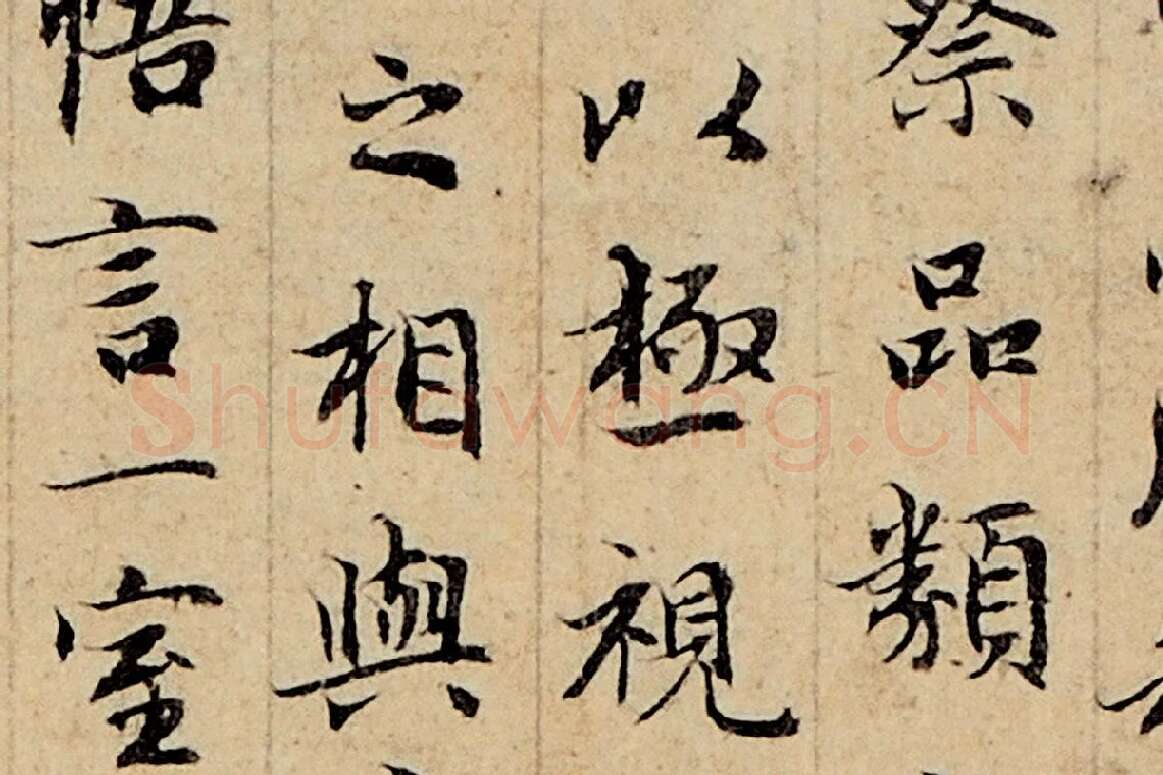 察品類
以極視
之相與
悟言一室
Shufawang.CN